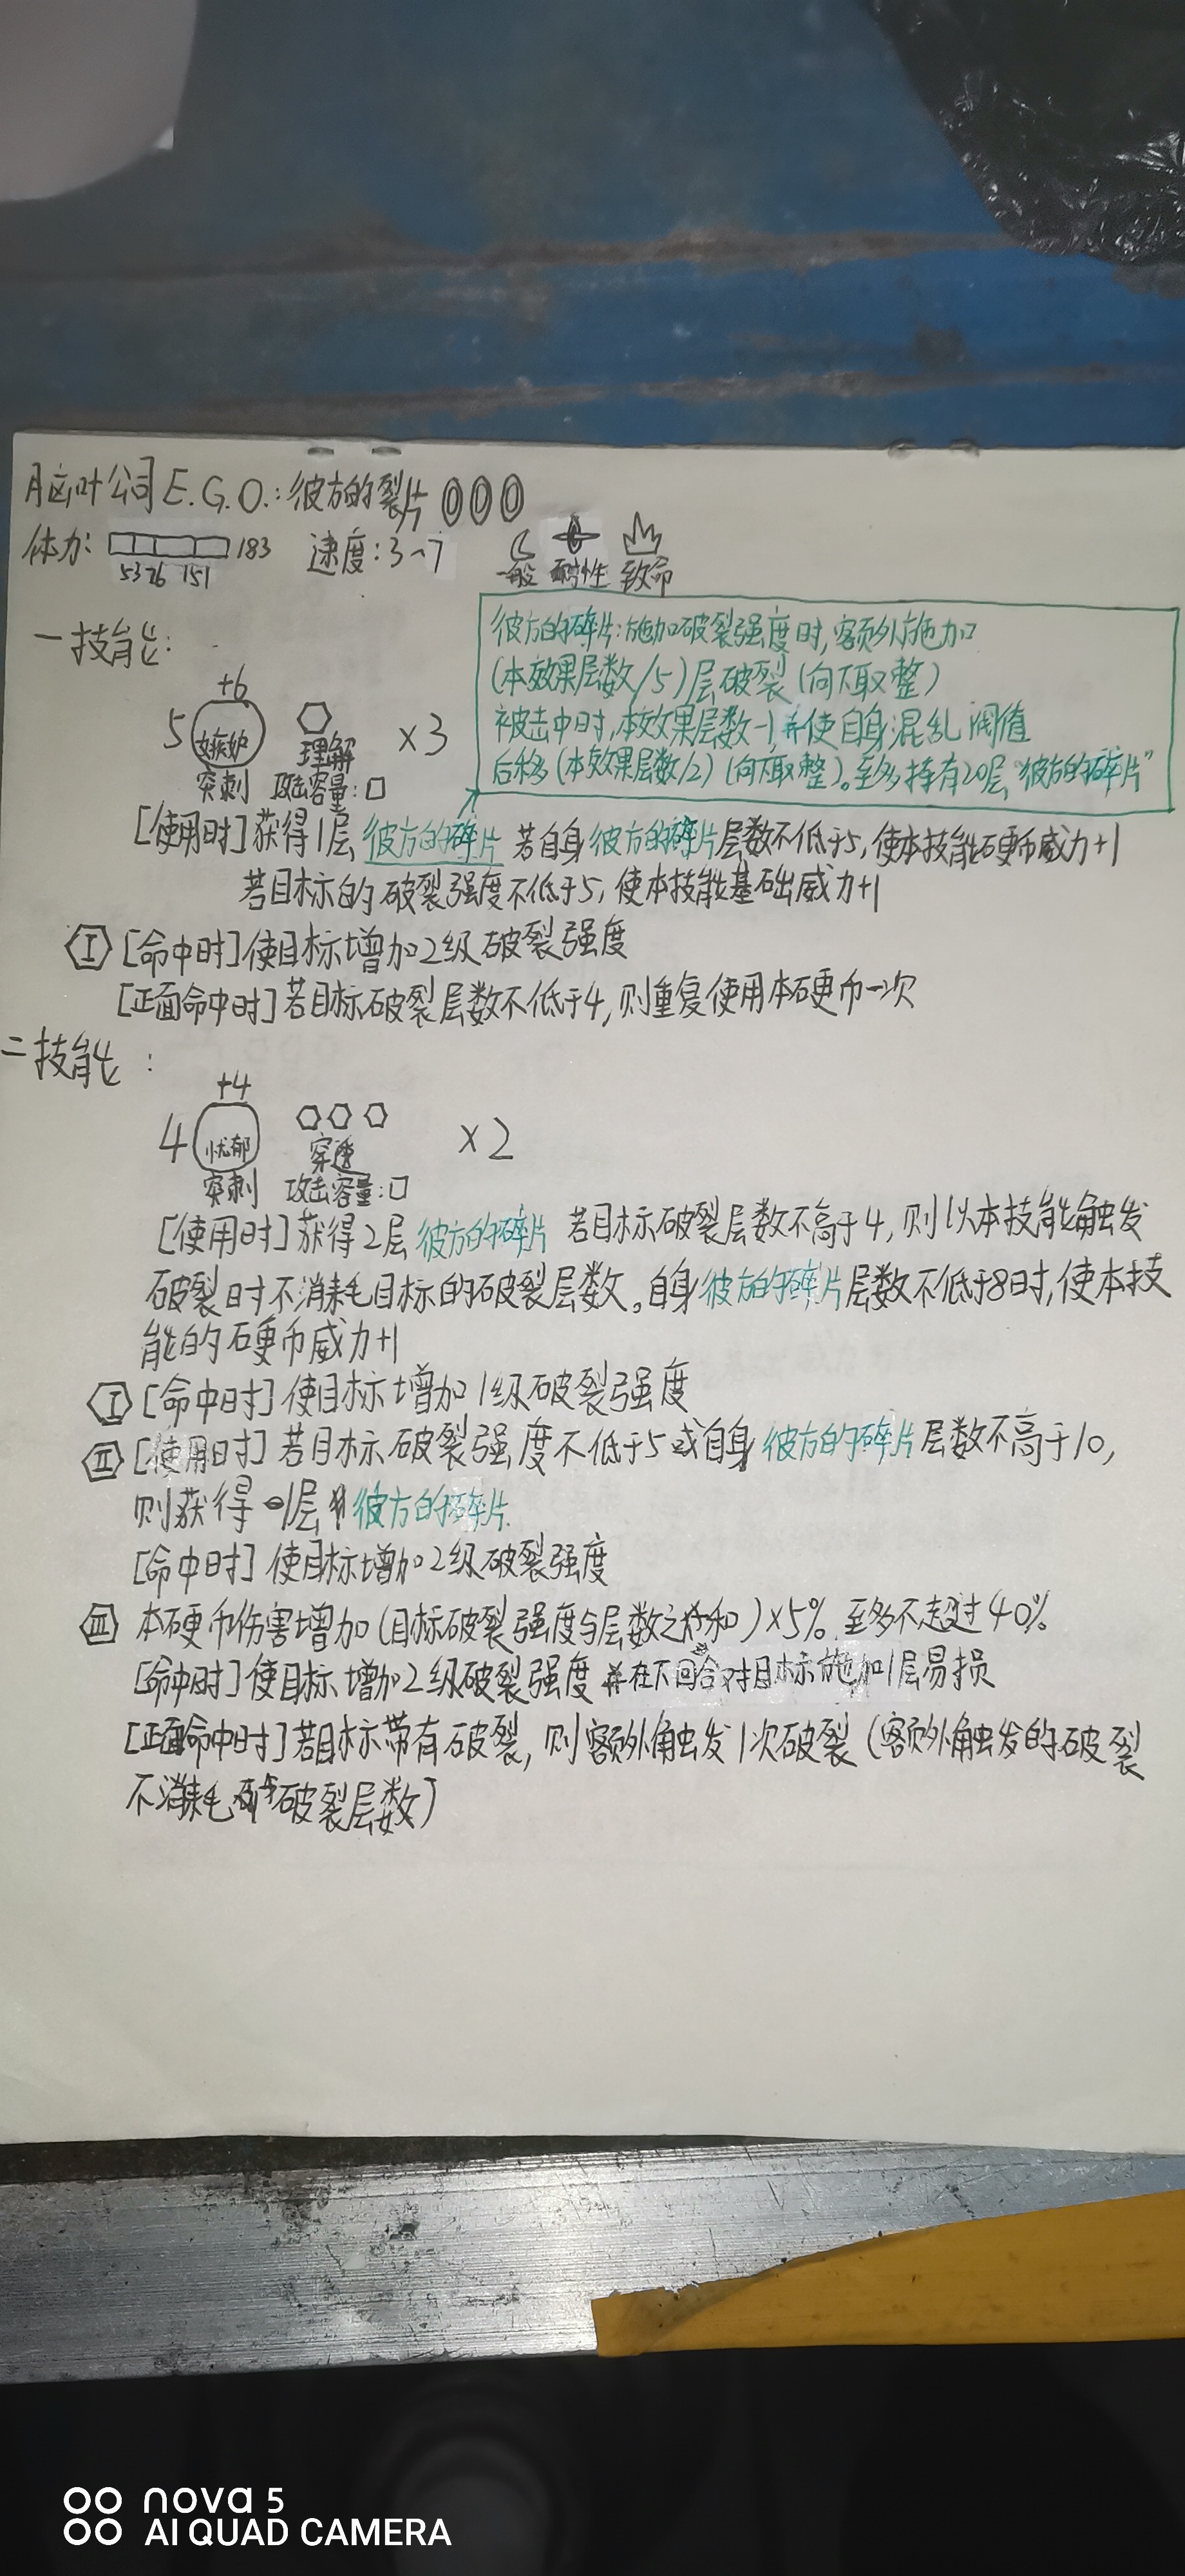 脑叶公司E.G.O.:彼方的裂片
体力: 183 速度:3~7
53 76 151 一般 耐性 致命
彼方的碎片:施加破裂强度时,额外施加
(本效果层数/5)层破裂(向下取整)
被击中时,本效果层数-1,并使自身混乱阈值
后移(本效果层数/2)(向下取整)。至多持有20层"彼方的碎片"
一技能:
+6
5 嫉妒 理解 ×3
突刺 攻击容量:□
[使用时]获得1层彼方的碎片 若自身彼方的碎片层数不低于5,使本技能硬币威力+1
若目标的破裂强度不低于5,使本技能基础威力+1
I [命中时]使目标增加2级破裂强度
[正面命中时]若目标破裂层数不低于4,则重复使用本硬币一次
二技能:
+4
4 忧郁 穿透 ×2
突刺 攻击容量:□
[使用时]获得2层彼方的碎片 若目标破裂层数不高于4,则以本技能触发
破裂时不消耗目标的破裂层数。自身彼方的碎片层数不低于8时,使本技
能的硬币威力+1
I [命中时]使目标增加1级破裂强度
II [使用时]若目标破裂强度不低于5或自身彼方的碎片层数不高于10,
则获得1层彼方的碎片.
[命中时]使目标增加2级破裂强度
III 本硬币伤害增加(目标破裂强度与层数之和)×5%,至多不超过40%
[命中时]使目标增加2级破裂强度并在下回合对目标施加1层易损
[正面命中时]若目标带有破裂,则额外触发1次破裂(额外触发的破裂
不消耗破裂层数)
nova 5
AI QUAD CAMERA